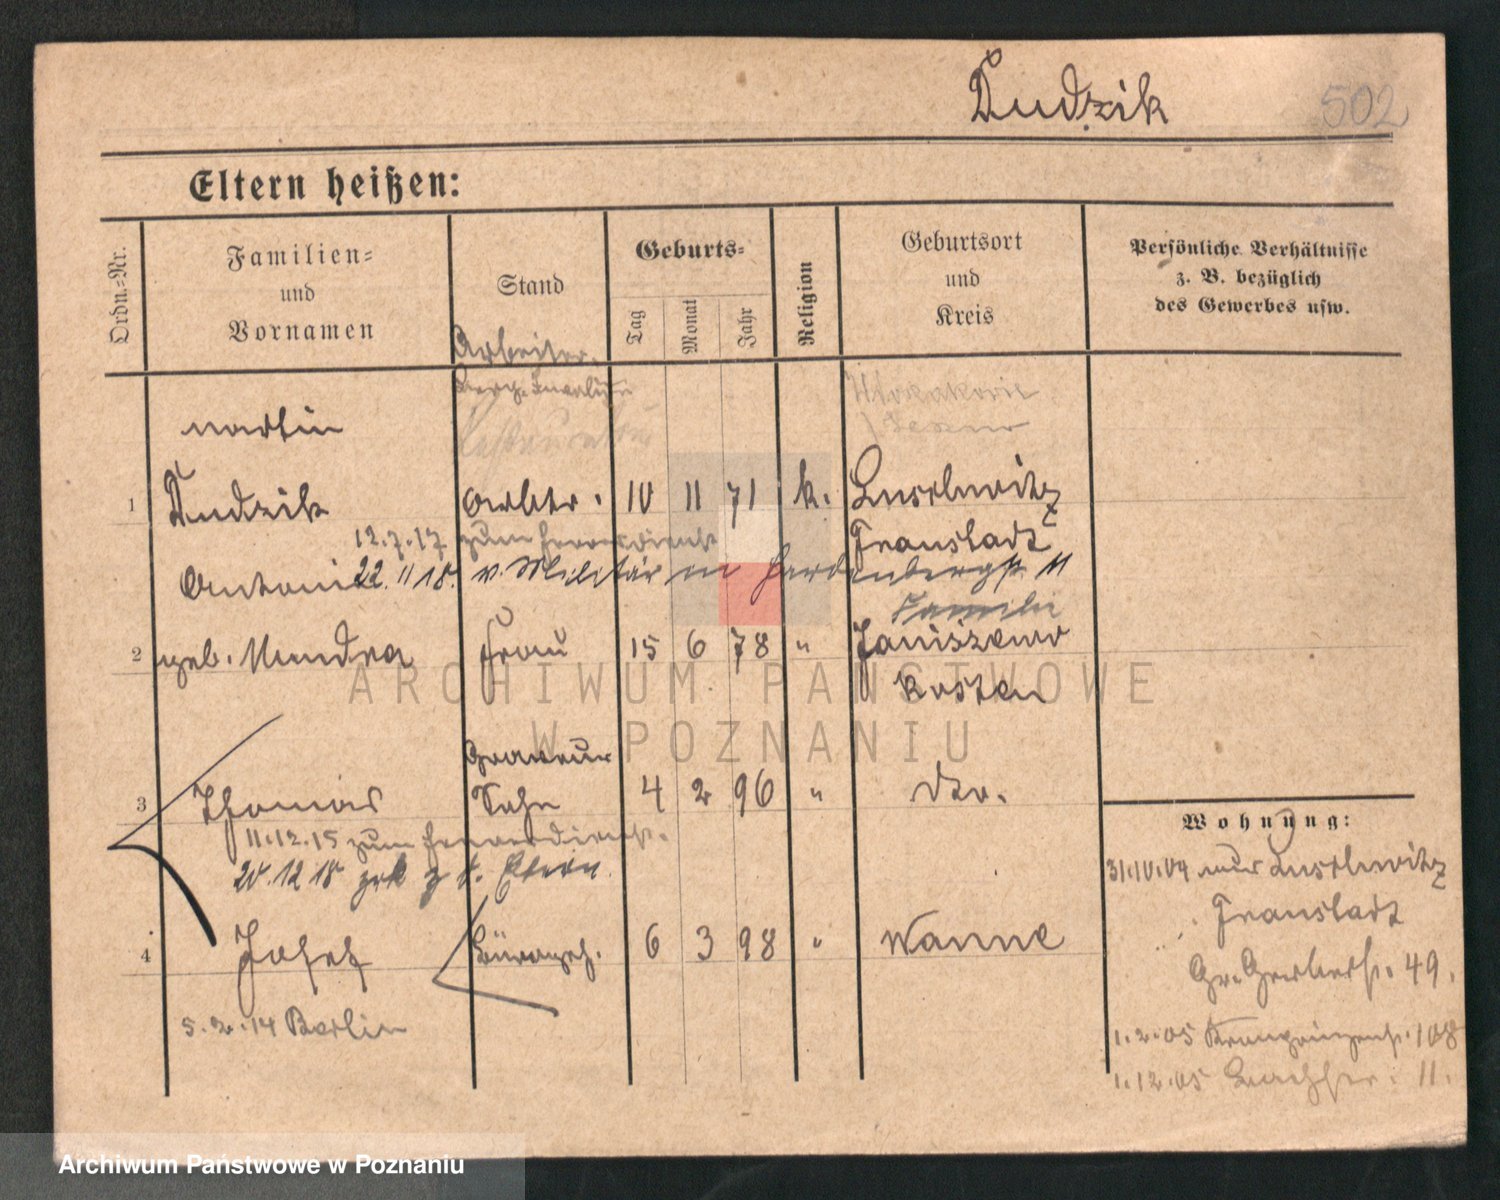 Dudzik 502
Eltern heißen:
Ordn.=Nr.
Familien=
und
Vornamen
Stand
Geburts=
Tag
Monat
Jahr
Religion
Geburtsort
und
Kreis
Persönliche Verhältnisse
z. B. bezüglich
des Gewerbes usw.
Arbeiter
Martin
1 Dudzik Arbtr. 10 11 71 k. Luschwitz
12.7.17 zum Heeresdienst Fraustadt
Antonie 22.11 18. v. Militär in Hardenbergst 11
Familie
2 geb. Mendra Frau 15 6 78 " Janiszewo
Kosten
Graveur
3 Thomas Sohn 4 2 96 " dto.
11.12.15 zum Heeresdienst.
20.12 18 zrk z d. Eltern.
4 Josef Bürogeh. 6 3 98 " Wanne
5.2.14 Berlin
Wohnung:
31.10.04 aus Luschwitz
Fraustadt
Gr. Gerberst. 49.
1.2.05 Kronprinzenst. 108
1.12.05 11.
ARCHIWUM PAŃSTWOWE
W POZNANIU
Archiwum Państwowe w Poznaniu